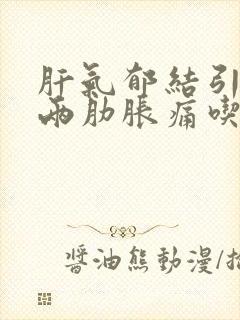 肝氣郁結引
兩肋脹痛喫
醬油熊動漫/插